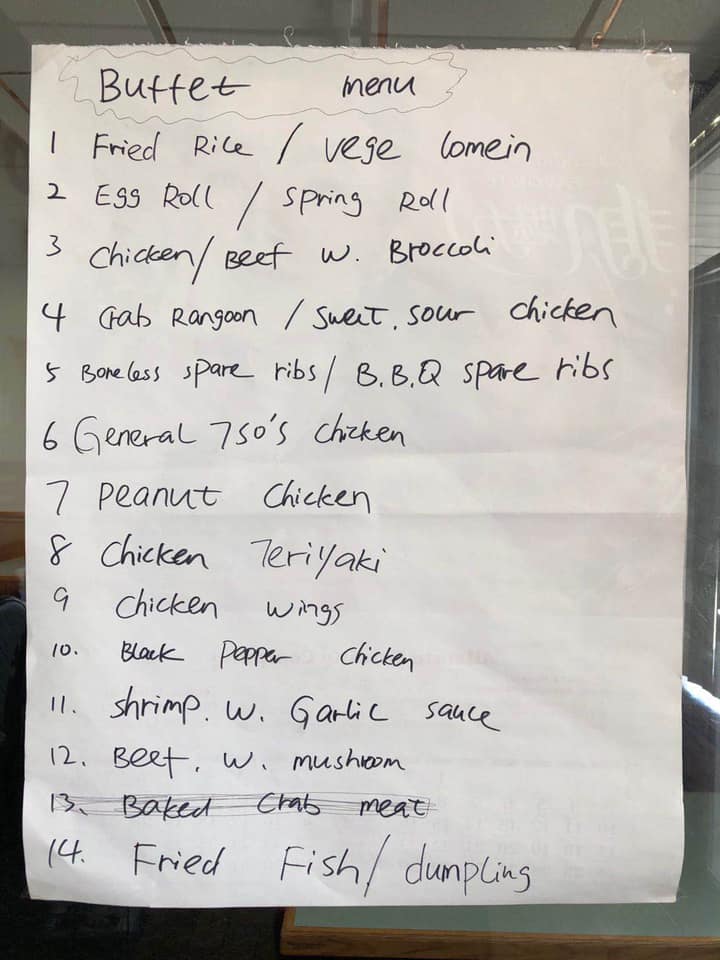 Buffet menu
1 Fried Rice / vege lomein
2 Egg Roll / spring Roll
3 Chicken/ Beef w. Broccoli
4 Crab Rangoon / sweet. sour chicken
5 Boneless spare ribs/ B.B.Q spare ribs
6 General Tso's chicken
7 peanut Chicken
8 Chicken Teriyaki
9 chicken wings
10. Black pepper chicken
11. shrimp. w. Garlic sauce
12. Beef. w. mushroom
13. Baked Crab meat
14. Fried Fish/ dumpling